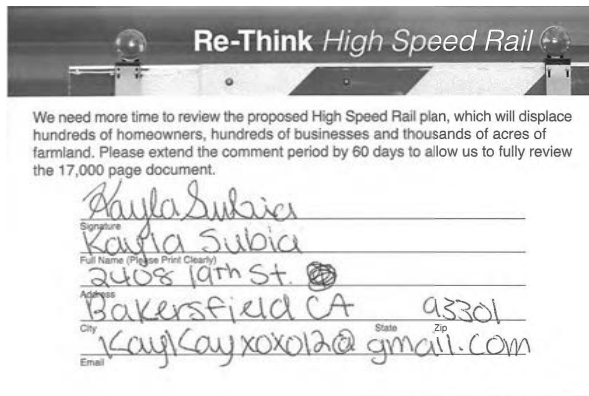 Re-Think High Speed Rail
We need more time to review the proposed High Speed Rail plan, which will displace
hundreds of homeowners, hundreds of businesses and thousands of acres of
farmland. Please extend the comment period by 60 days to allow us to fully review
the 17,000 page document.
Kayla Subia
Signature
Kayla Subia
Full Name (Please Print Clearly)
2408 19th St.
Address
Bakersfield CA 93301
City State Zip
KaylKayxoxo12@gmail.com
Email